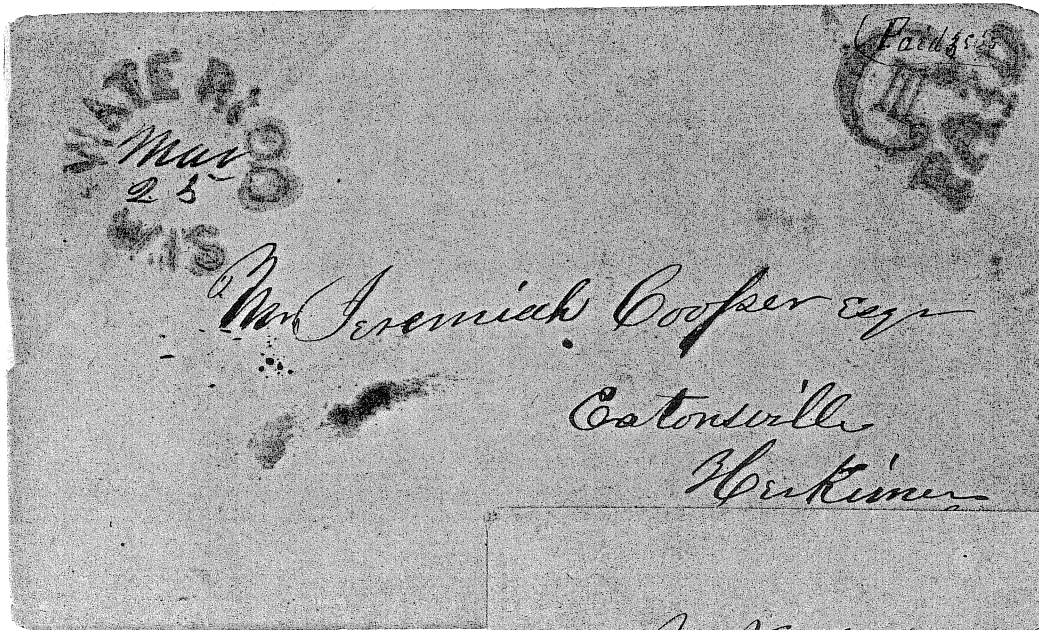 WATERLOO
Mar
25
WIS
Paid 3 cts
PAID
III
Mr Jeremiah Cooper Esqr
Eatonsville
Herkimer